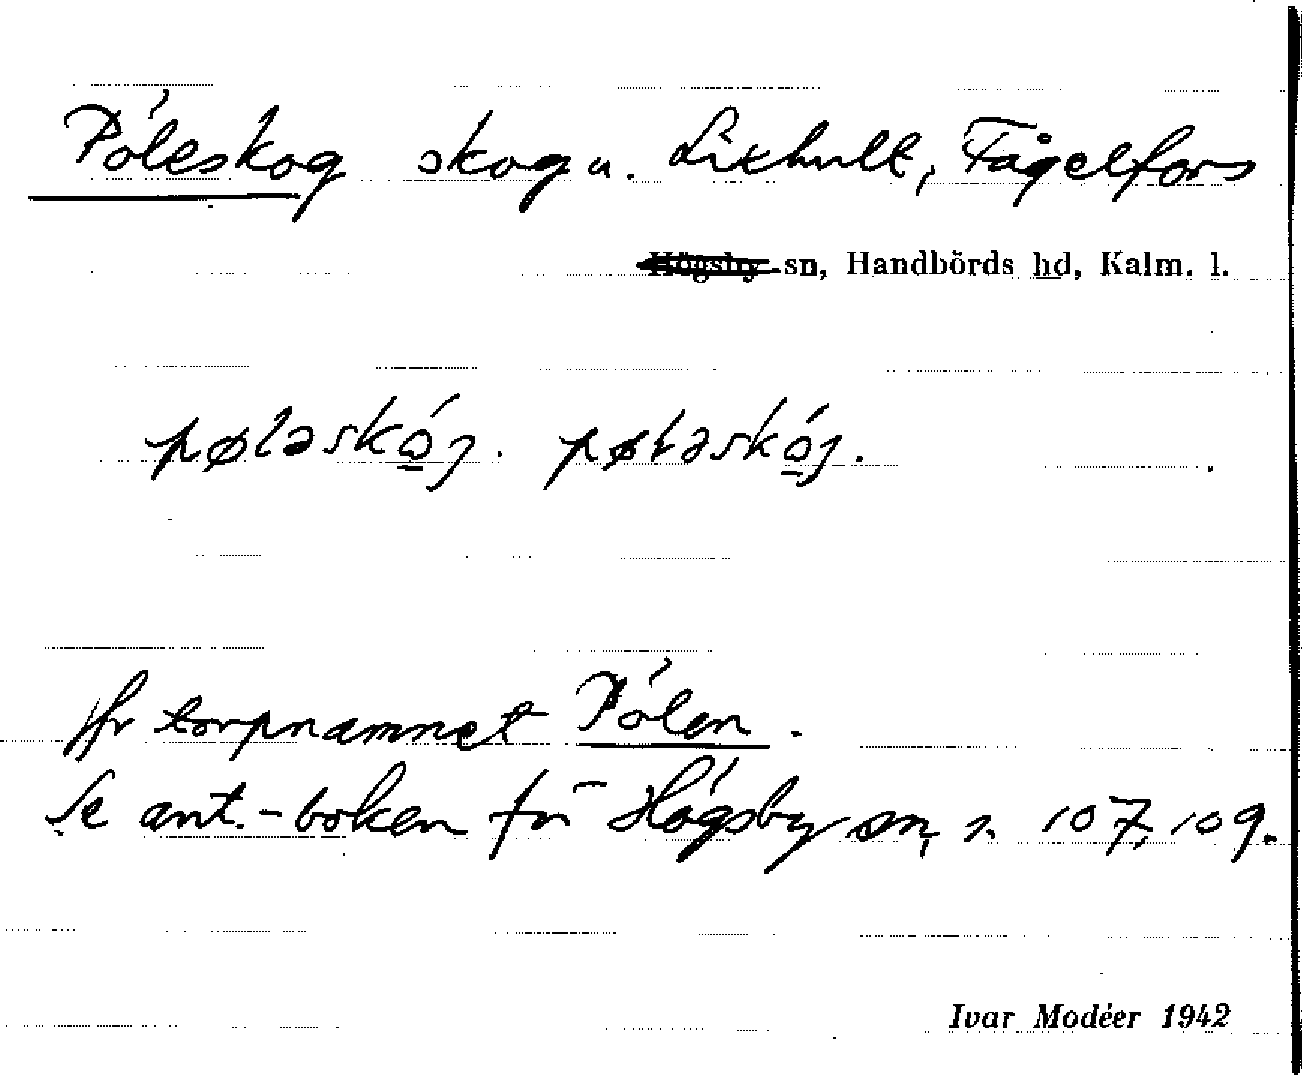 Pöleskog skog u. Lixhult, Fågelfors
Högsby sn, Handbörds hd, Kalm. l.
pøləskó̱ȷ. pøləskó̱ȷ.
Jfr torpnamnet Pölen.
Se ant.-boken för Högsby sn, s. 107, 109.
Ivar Modéer 1942